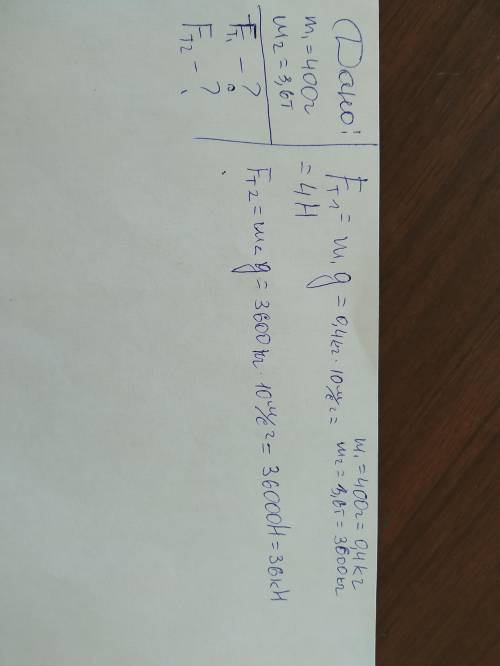 Дано:
m₁ = 400г
m₂ = 3,6т
Fт₁ - ?
Fт2 - ?
m₁ = 400г = 0,4кг
m₂ = 3,6т = 3600кг
Fт1 = m₁g = 0,4кг · 10м/с² =
= 4Н
Fт2 = m₂g = 3600кг · 10м/с² = 36000Н = 36кН